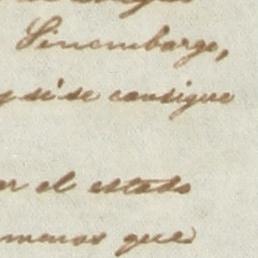 Sinembargo,
y si se consigue
el estado
menos que